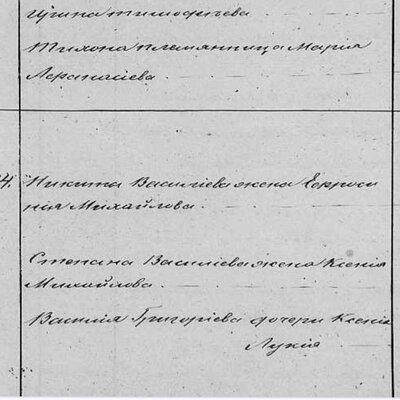 Ирина Тимофѣева
Тихона племянница Мария
Афанасіева
4. Никиты Василіева жена Евфроси
нія Михайлова.
Степана Василіева жена Ксенія
Михайлова.
Василія Григоріева дочери Ксенія
Лукія